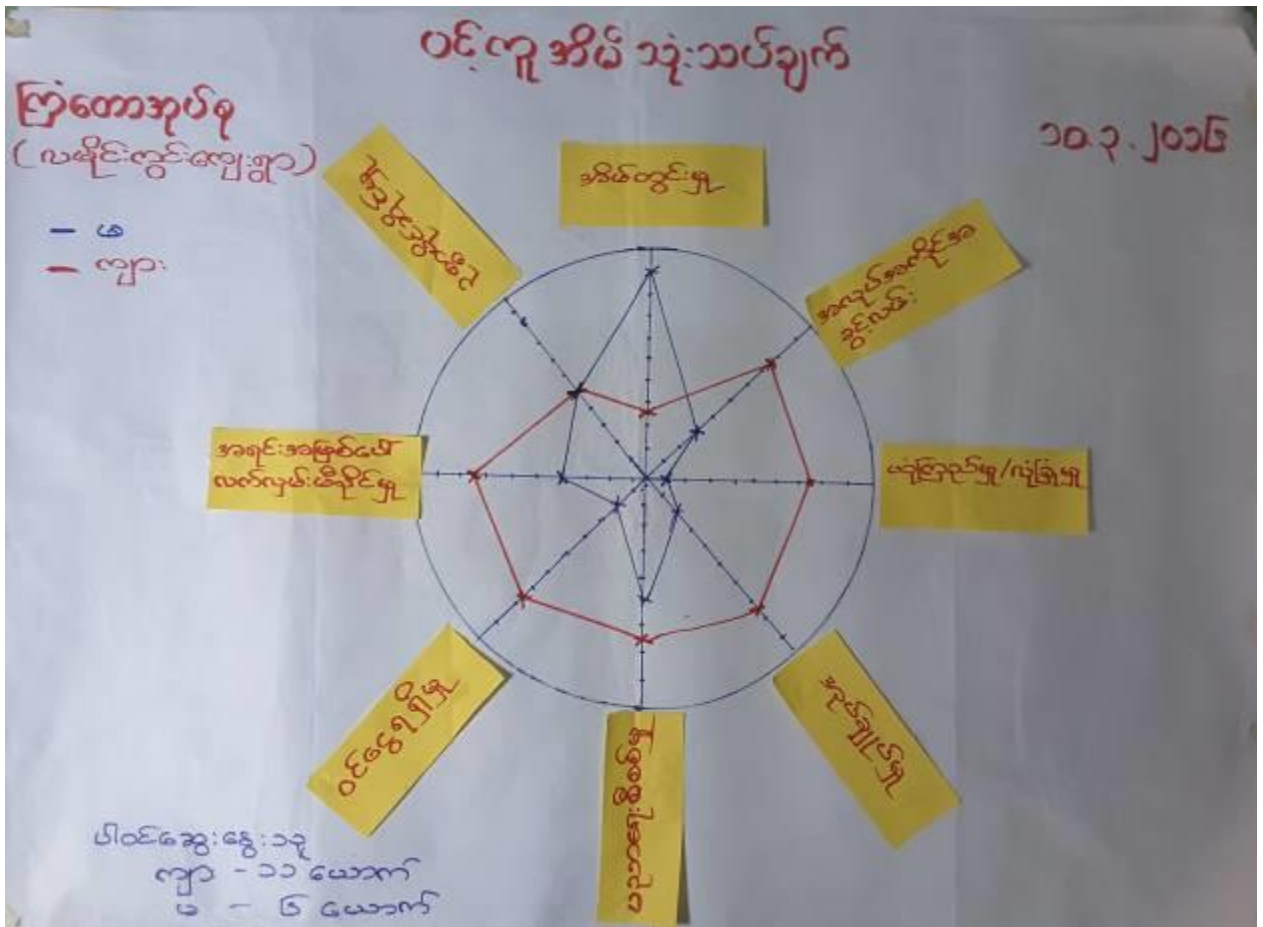 ပင့်ကူအိမ် သုံးသပ်ချက်
ကြံတောအုပ်စု
(လမိုင်းကွင်းကျေးရွာ)
၁၀.၃.၂၀၁၆
– မ
– ကျား
အိမ်တွင်းမှု
အလုပ်အကိုင်အ
ခွင့်လမ်း
ယုံကြည်မှု/လုံခြုံမှု
အုပ်ချုပ်မှု
ဝင်ငွေရရှိမှု
အရင်းအမြစ်ပေါ်
လက်လှမ်းမီနိုင်မှု
ပါဝင်ဆွေးနွေးသူ
ကျား - ၁၁ ယောက်
မ - ၆ ယောက်